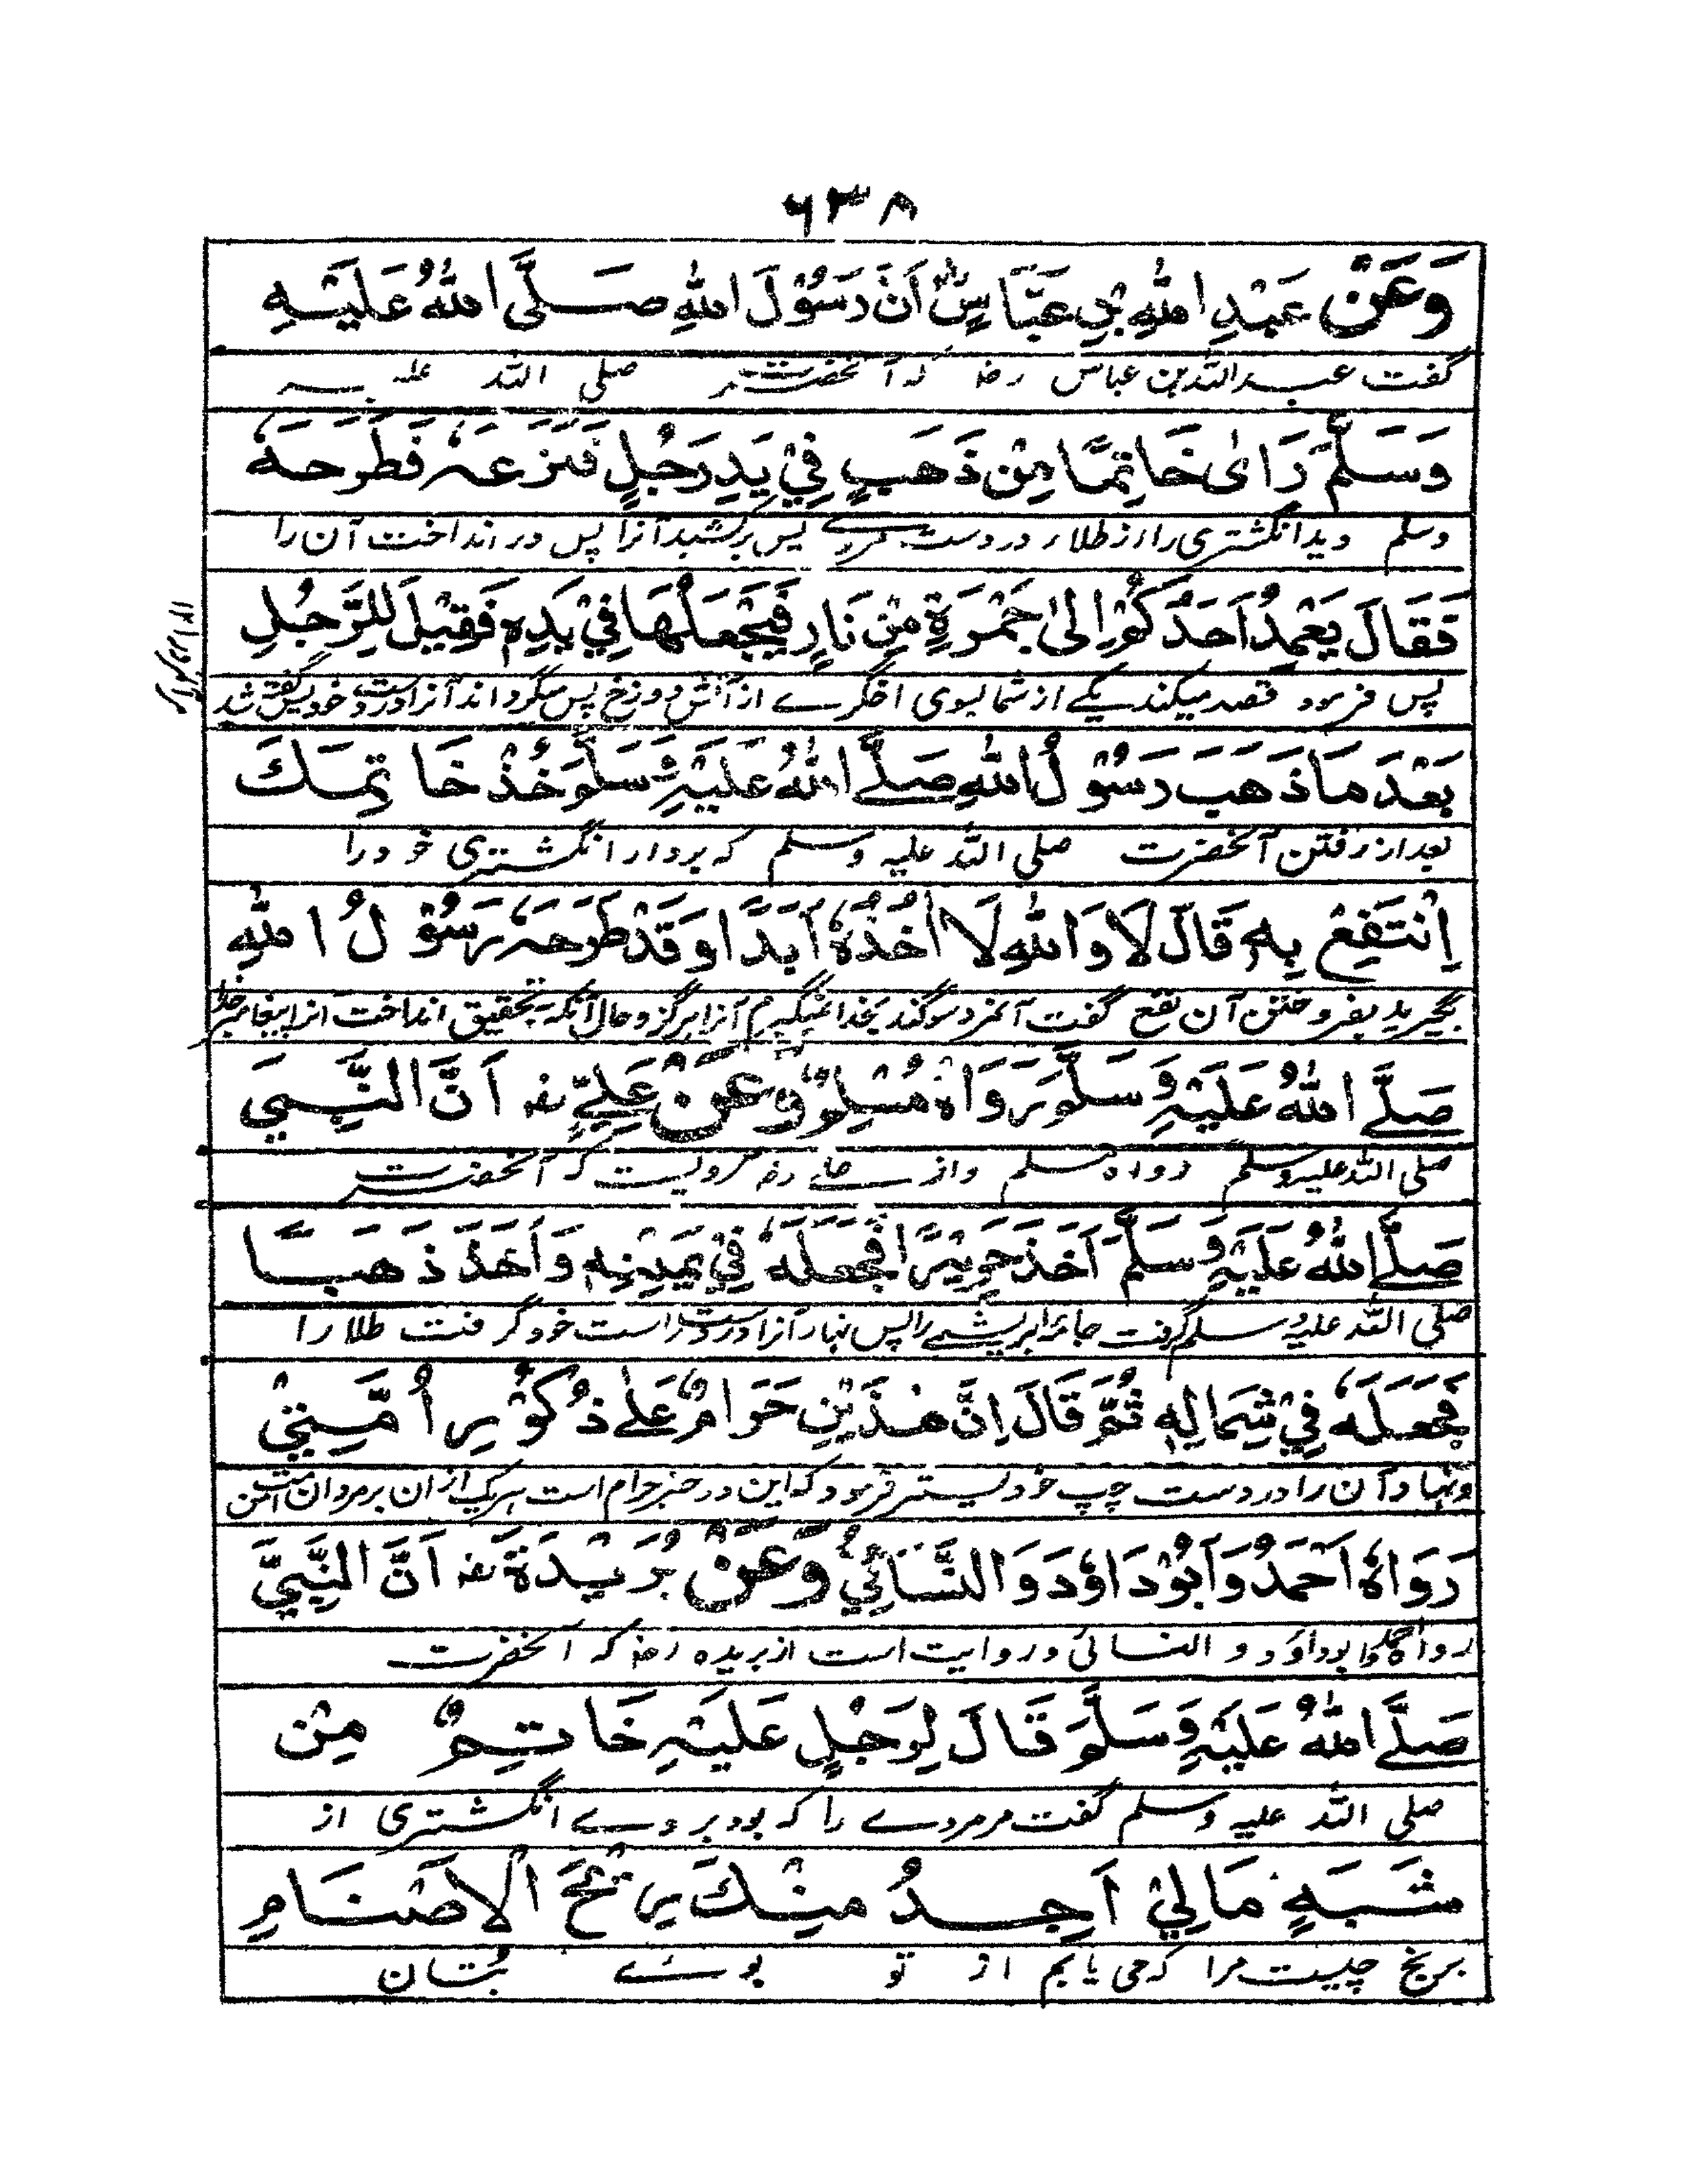 ۶۳۸
وَعَنْ عَبْدِ اللّٰهِ بْنِ عَبَّاسٍ اَنَّ رَسُوْلَ اللّٰهِ صَلَّى اللّٰهُ عَلَيْهِ
گفت عبد اللہ بن عباس رضہ کہ آنحضرت صلی اللہ علیہ
وَسَلَّمَ رَاٰى خَاتِمًا مِنْ ذَهَبٍ فِيْ يَدِ رَجُلٍ فَنَزَعَهٗ فَطَرَحَهٗ
وسلم دید انگشتری را از طلا در دست مردے پس برکشید آنرا پس در انداخت آن را
فَقَالَ يَعْمِدُ اَحَدُكُمْ اِلىٰ جَمْرَةٍ مِنْ نَارٍ فَيَجْعَلُهَا فِيْ يَدِهٖ فَقِيْلَ لِلرَّجُلِ
پس فرمود قصد میکند یکے از شما بسوی اخگرے از آتش دوزخ پس میگرداند آنرا در دست خود پس گفته شد
بَعْدَ مَا ذَهَبَ رَسُوْلُ اللّٰهِ صَلَّے اللّٰهُ عَلَيْهِ وَسَلَّمَ خُذْ خَاتِمَكَ
بعد از رفتن آنحضرت صلی اللہ علیہ وسلم کہ بردار انگشتری خود را
اِنْتَفِعْ بِهٖ قَالَ لَا وَاللّٰهِ لَا اٰخُذُهٗ اَبَدًا وَقَدْ طَرَحَهٗ رَسُوْلُ اللّٰهِ
بگیرید بفروختن آن نفع گفت آنمرد سوگند بخدا نمیگیرم آنرا ہرگز و حال آنکہ بتحقیق انداخت آنرا پیغامبر خدا
صَلَّے اللّٰهُ عَلَيْهِ وَسَلَّمَ رَوَاهُ مُسْلِمٌ وَعَنْ عَلِيٍّ رضہ اَنَّ النَّبِيَّ
صلی اللہ علیہ وسلم رواہ مسلم و از علے رضہ مرویست کہ آنحضرت
صَلَّے اللّٰهُ عَلَيْهِ وَسَلَّمَ اَخَذَ حَرِيْرًا فَجَعَلَهٗ فِيْ يَمِيْنِهٖ وَاَخَذَ ذَهَبًا
صلی اللہ علیہ وسلم گرفت جامہ ابریشمے را پس نہاد آنرا در دست راست خود گرفت طلا را
فَجَعَلَهٗ فِيْ شِمَالِهٖ ثُمَّ قَالَ اِنَّ هٰذَيْنِ حَرَامٌ عَلٰے ذُكُوْرِ اُمَّتِيْ
ونہاد آن را در دست چپ خود پستر فرمود کہ این دو چیز حرام است ہر یک ازان بر مردان امت من
رَوَاهُ اَحْمَدُ وَاَبُوْدَاوٗدَ وَالنَّسَائِيُّ وَعَنْ بُرَيْدَةَ رضہ اَنَّ النَّبِيَّ
رواہ احمد و ابوداؤد و النسائی و روایت است از بریدہ رضہ کہ آنحضرت
صَلَّے اللّٰهُ عَلَيْهِ وَسَلَّمَ قَالَ لِرَجُلٍ عَلَيْهِ خَاتِمٌ مِنْ
صلی اللہ علیہ وسلم گفت مر مردے را کہ بود بر وے انگشتری از
شَبَهٍ مَا لِيْ اَجِدُ مِنْكَ رِيْحَ الْاَصْنَامِ
برنج چیست مرا کہ می یابم از تو بوے بُتان